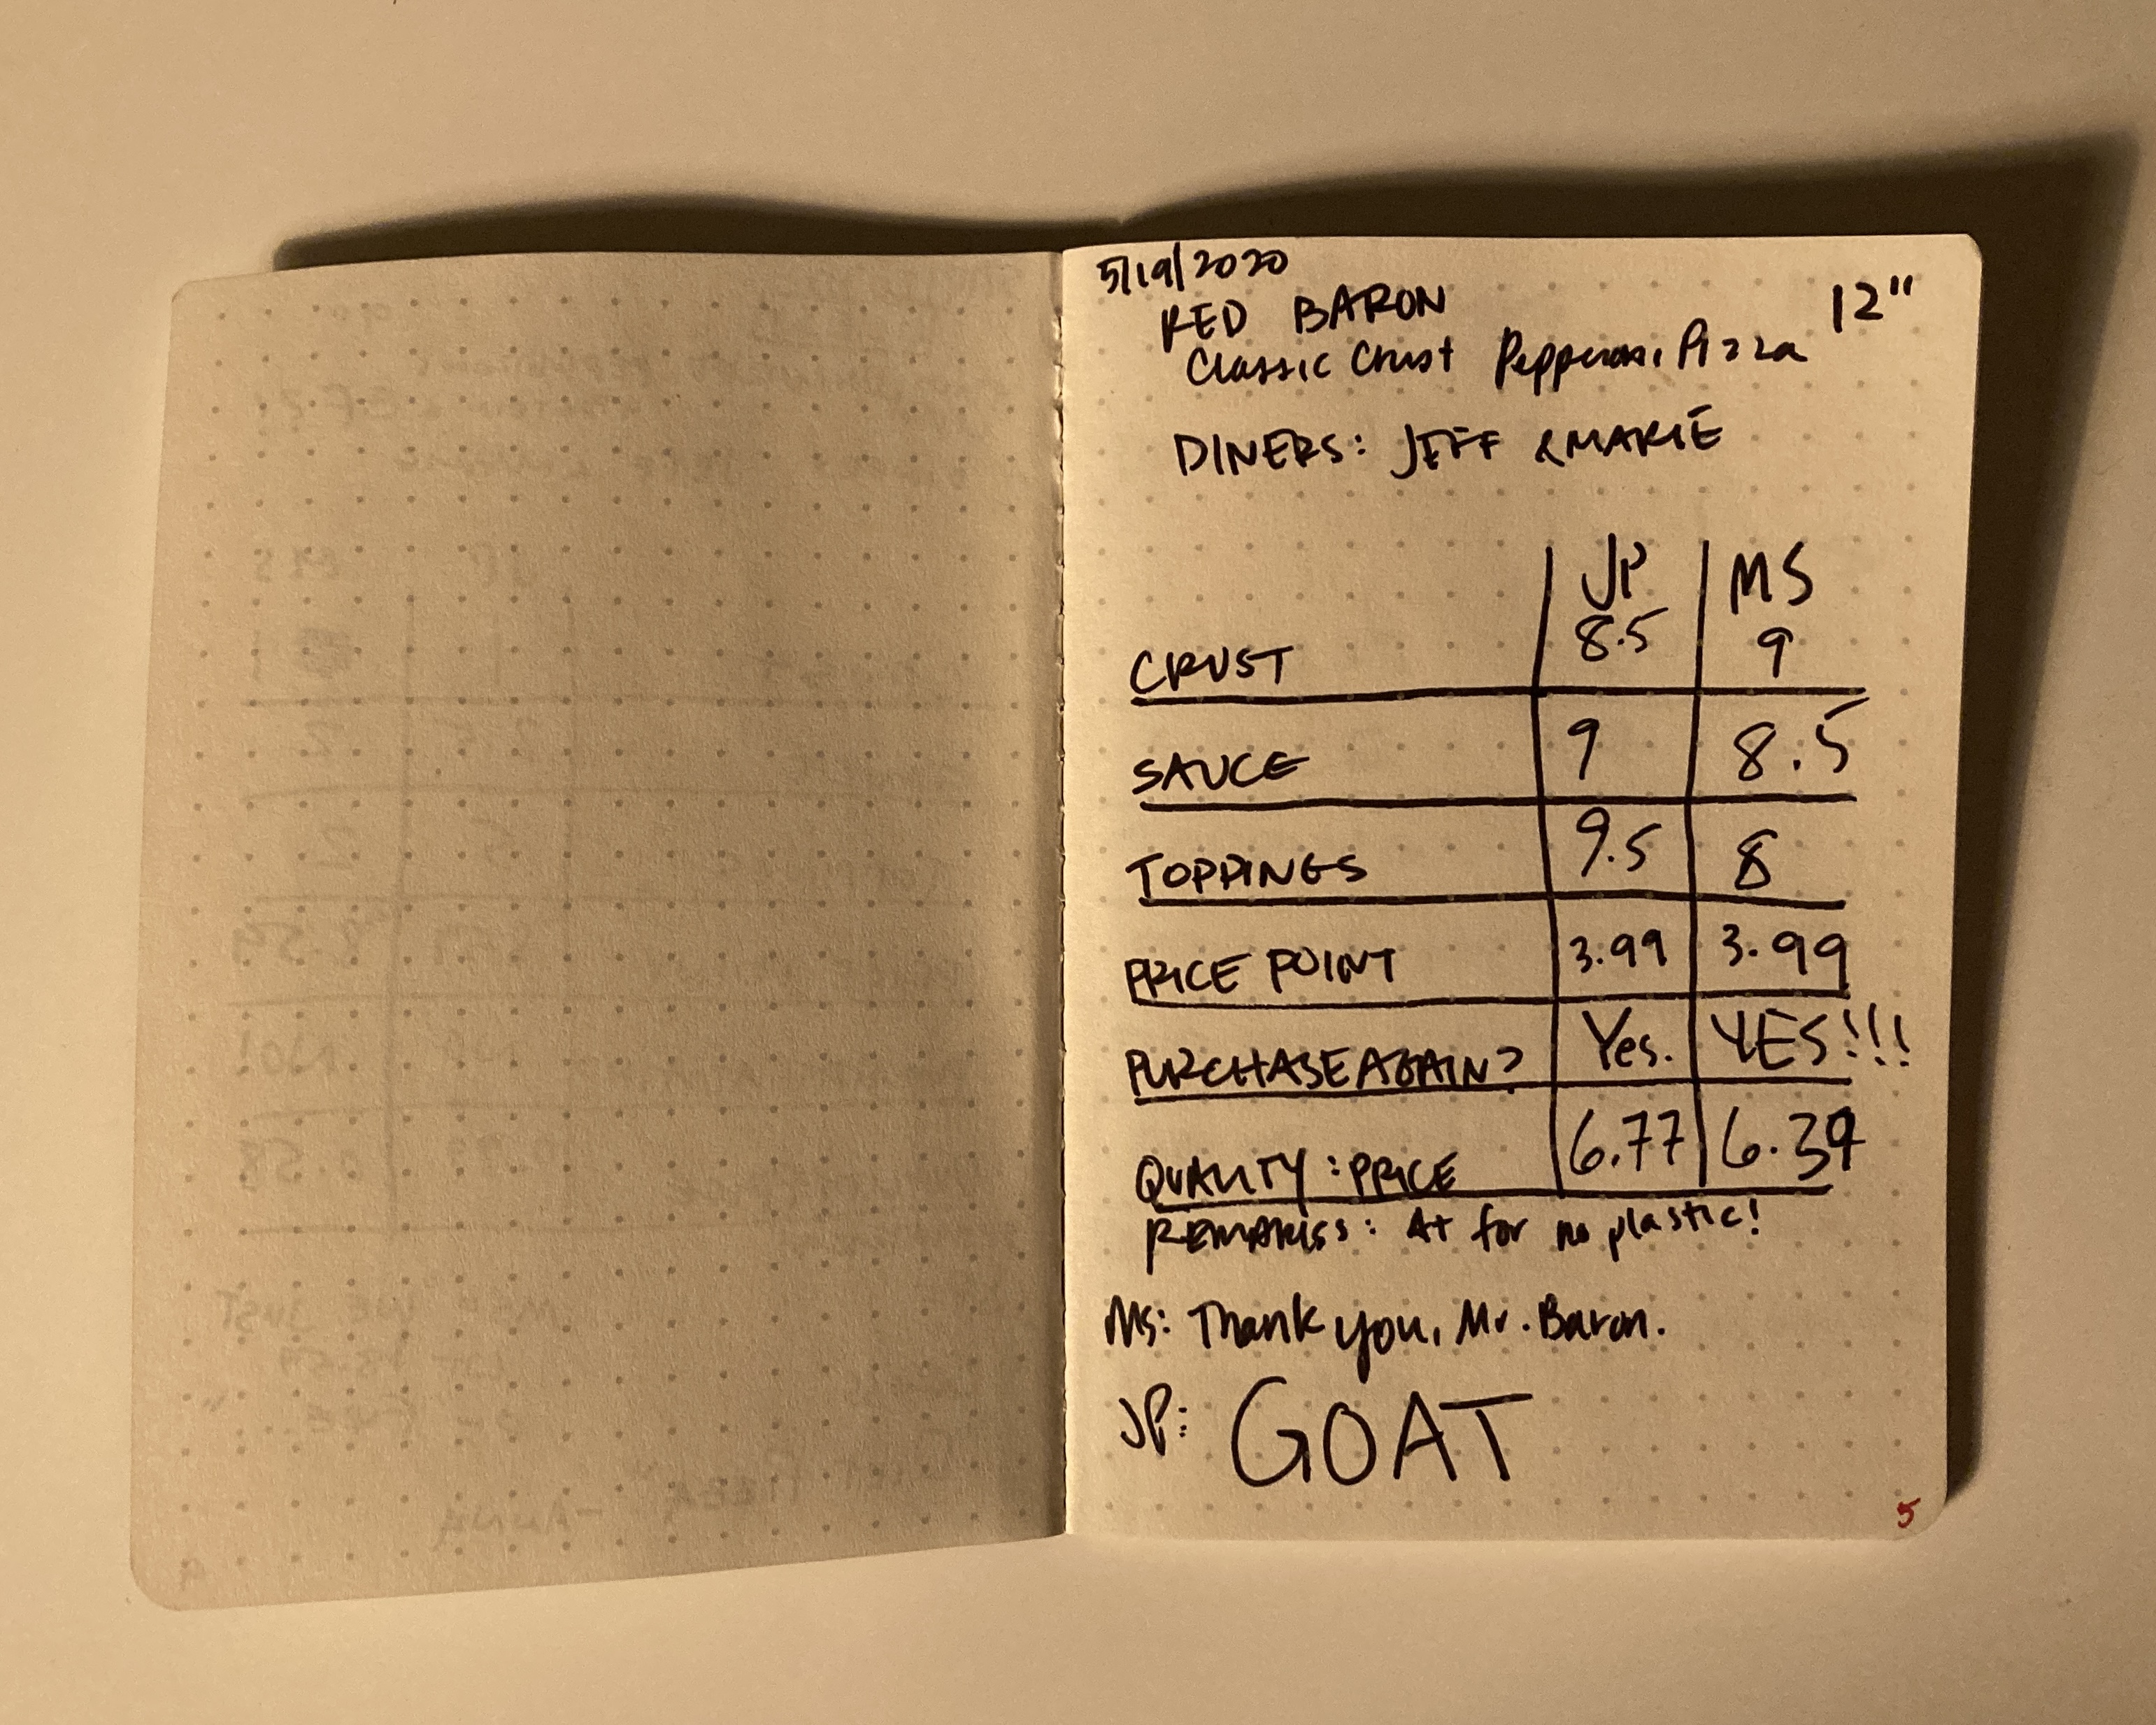 5/19/2020
RED BARON 12"
Classic Crust Pepperoni Pizza
DINERS: JEFF & MARIE
JP MS
CRUST 8.5 9
SAUCE 9 8.5
TOPPINGS 9.5 8
PRICE POINT 3.99 3.99
PURCHASE AGAIN? Yes. YES!!!
QUALITY:PRICE 6.77 6.39
REMARKS: A+ for no plastic!
MS: Thank you, Mr. Baron.
JP: GOAT
5